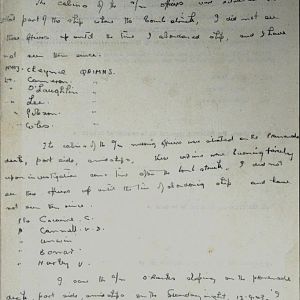 The cabins of the o/m officers was situated in
part of the ship when the bomb struck, I did not see
these officers up until the time I abandoned ship, and I have
not seen them since.
Cheyne QAIMNS.
Lt. Cameron. "
" O'Loughlin "
" Lee. "
" Gibson. "
" Coles. "
The cabins of the o/m missing officers were situated on the Promenade
deck, port side, amidships, these cabins were burning fiercely
upon investigation some time after the bomb struck. I did not
see these officers up until the time of abandoning ship and have
not seen them since.
Cocaine C.
" Cannell V.J.
" Unwin
" Bonar
" Hurley V.
I saw the o/m o Ranks sleeping on the promenade
deck port side amidships on the Sunday night